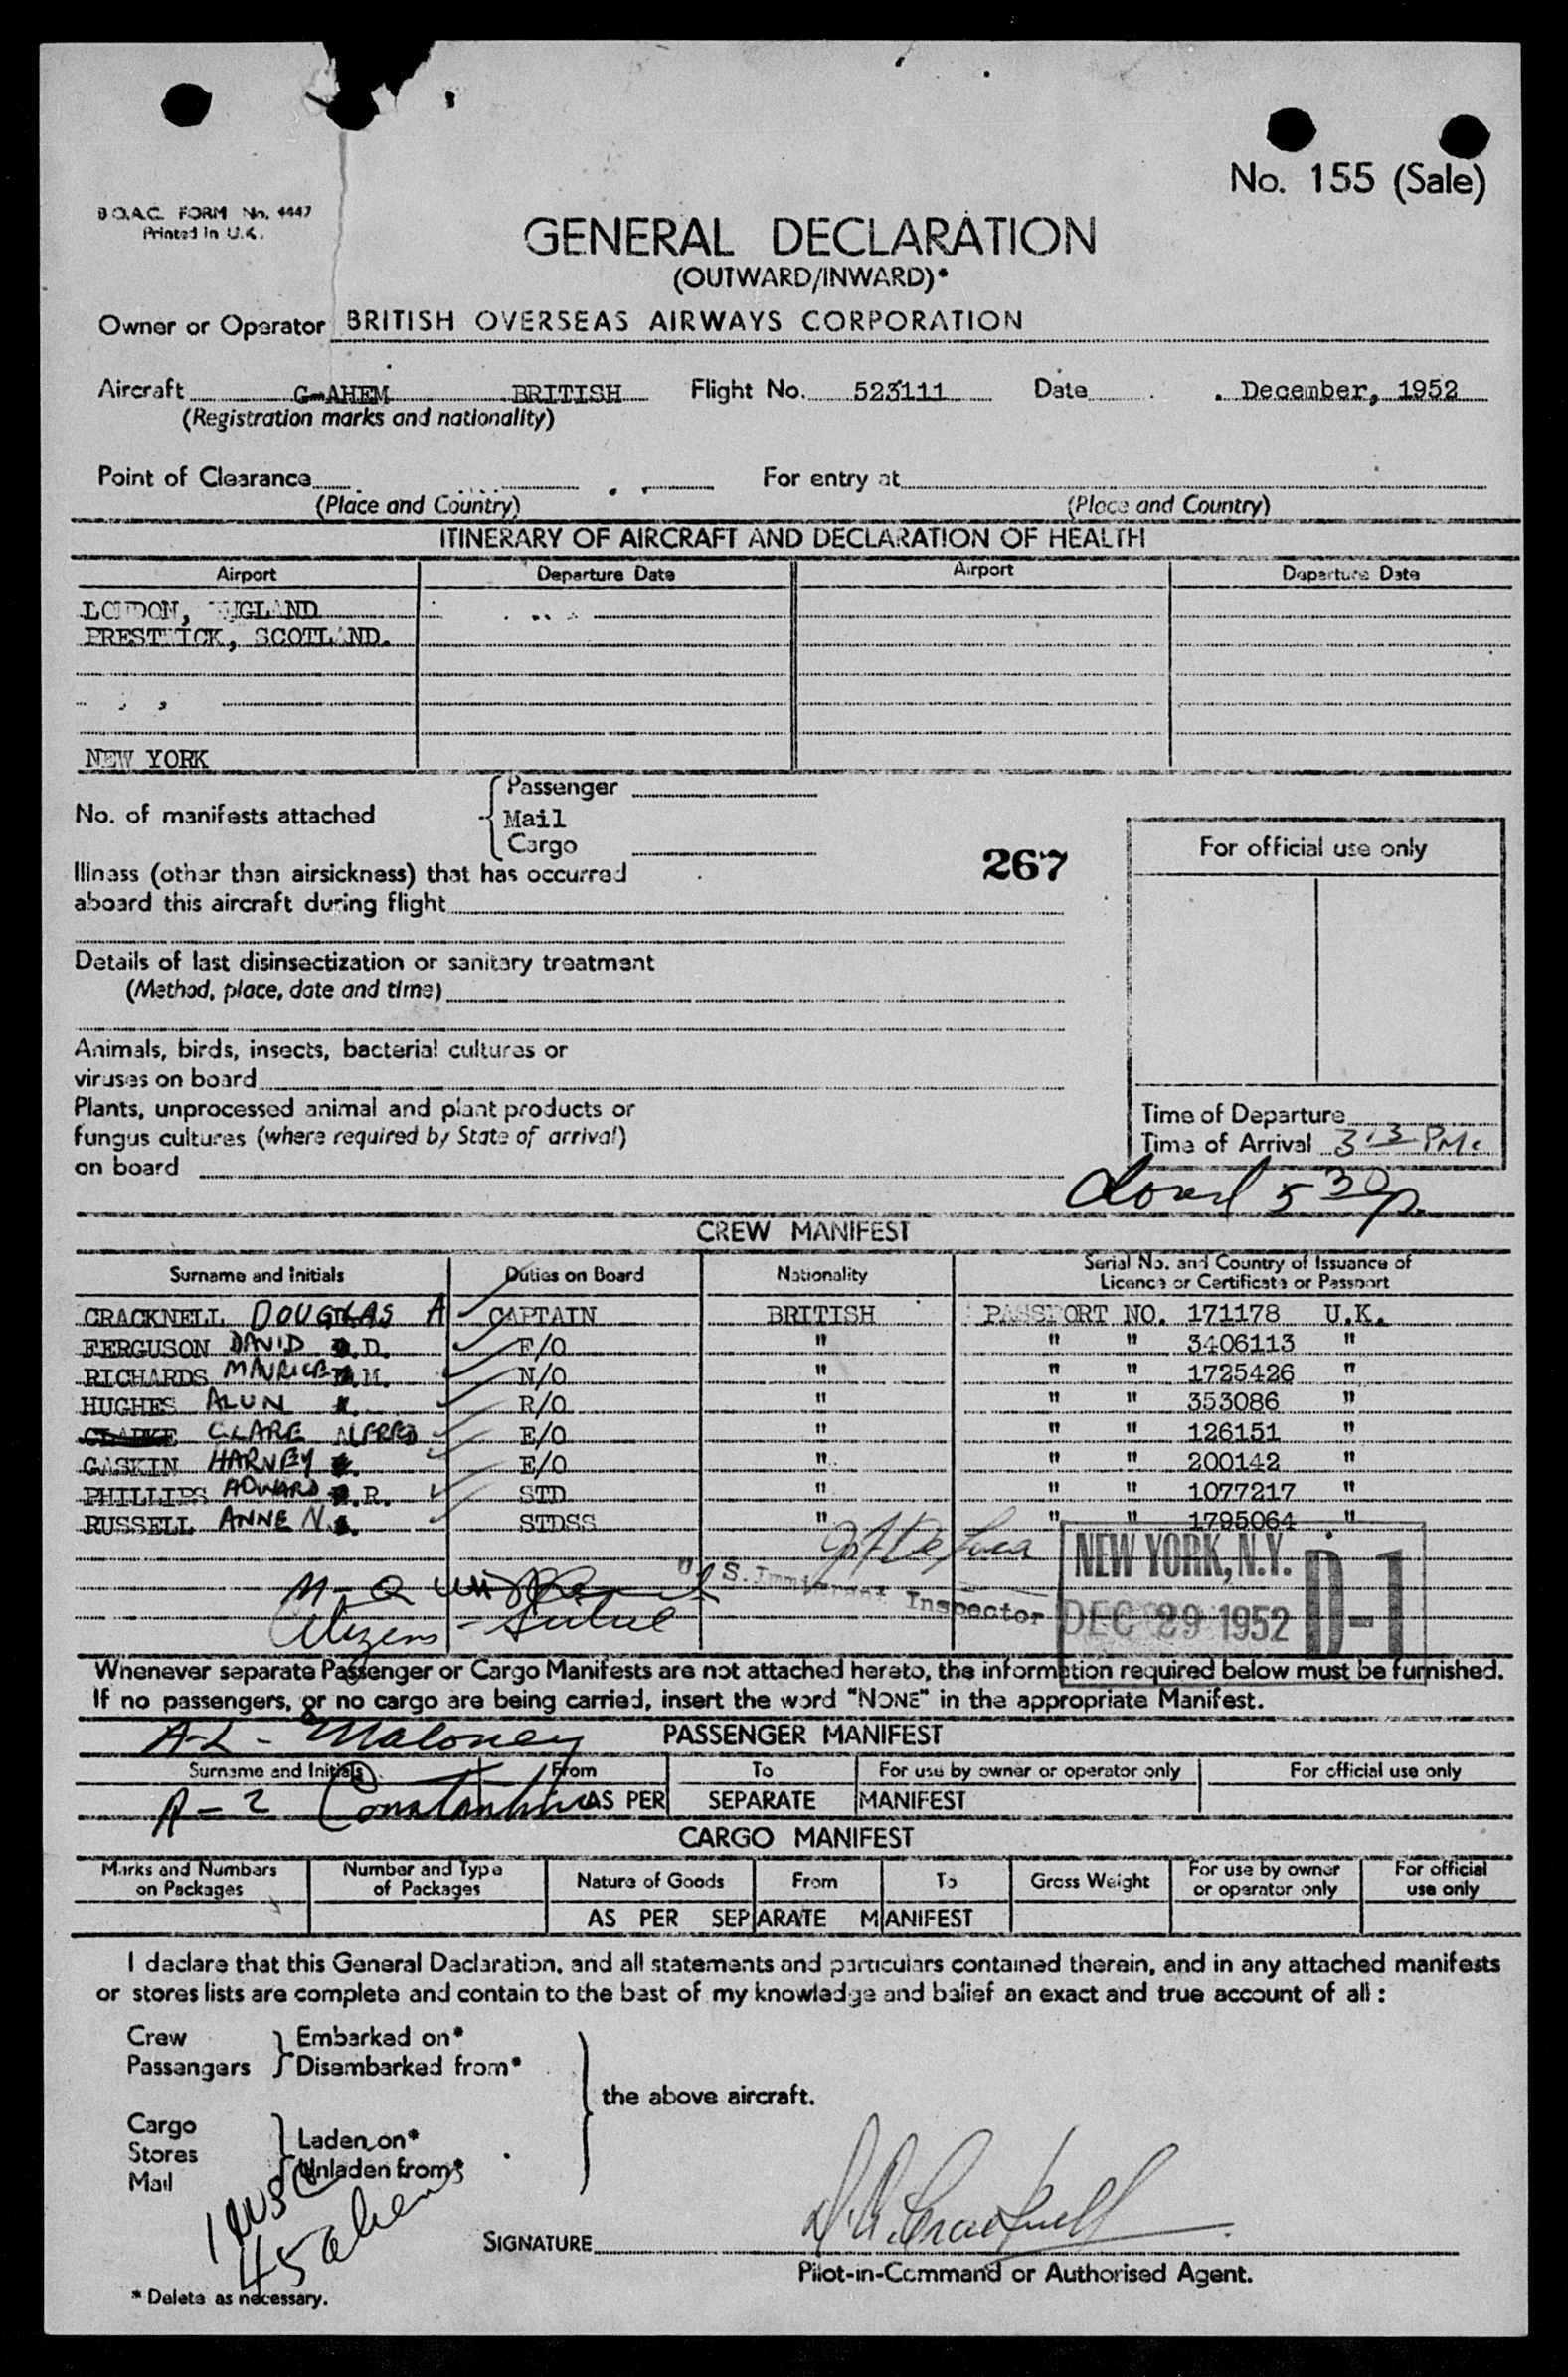 No. 155 (Sale)
B.O.A.C. FORM No. 4447
Printed in U.K.
GENERAL DECLARATION
(OUTWARD/INWARD)*
Owner or Operator BRITISH OVERSEAS AIRWAYS CORPORATION
Aircraft G-AHEM BRITISH Flight No. 523111 Date December, 1952
(Registration marks and nationality)
Point of Clearance For entry at
(Place and Country) (Place and Country)
ITINERARY OF AIRCRAFT AND DECLARATION OF HEALTH
Airport Departure Date Airport Departure Date
LONDON, ENGLAND
PRESTWICK, SCOTLAND.
NEW YORK
No. of manifests attached
Passenger
Mail
Cargo
267
For official use only
Illness (other than airsickness) that has occurred
aboard this aircraft during flight
Details of last disinsectization or sanitary treatment
(Method, place, date and time)
Animals, birds, insects, bacterial cultures or
viruses on board
Plants, unprocessed animal and plant products or
fungus cultures (where required by State of arrival)
on board
Time of Departure
Time of Arrival 313 PM.
5 30 p.
CREW MANIFEST
Surname and Initials Duties on Board Nationality Serial No. and Country of Issuance of
Licence or Certificate or Passport
CRACKNELL DOUGLAS A CAPTAIN BRITISH PASSPORT NO. 171178 U.K.
FERGUSON DAVID D. F/O " " " 3406113 "
RICHARDS MAURICE M. N/O " " " 1725426 "
HUGHES ALUN R/O " " " 353086 "
CLARKE CLARE ALFRED E/O " " " 126151 "
GASKIN HARVEY E/O " " " 200142 "
PHILLIPS EDWARD R. STD " " " 1077217 "
RUSSELL ANNE N. STDSS " " " 1795064 "
U. S. Immigrant Inspector
NEW YORK, N.Y.
DEC 29 1952 D-1
Citizens
Whenever separate Passenger or Cargo Manifests are not attached hereto, the information required below must be furnished.
If no passengers, or no cargo are being carried, insert the word "NONE" in the appropriate Manifest.
A-2 - Maloney
PASSENGER MANIFEST
Surname and Initials From To For use by owner or operator only For official use only
A-2 Constantine
AS PER SEPARATE MANIFEST
CARGO MANIFEST
Marks and Numbers on Packages Number and Type of Packages Nature of Goods From To Gross Weight For use by owner or operator only For official use only
AS PER SEPARATE MANIFEST
I declare that this General Declaration, and all statements and particulars contained therein, and in any attached manifests
or stores lists are complete and contain to the best of my knowledge and belief an exact and true account of all:
Crew
Passengers
Embarked on*
Disembarked from*
the above aircraft.
Cargo
Stores
Mail
Laden on*
Unladen from*
1 USC
45 aliens
SIGNATURE D.A. Cracknell
Pilot-in-Command or Authorised Agent.
* Delete as necessary.